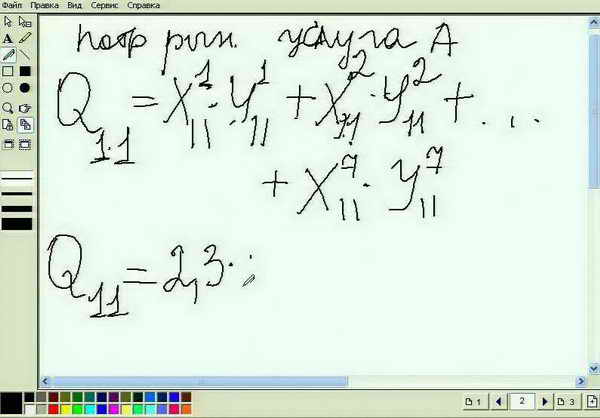 Файл Правка Вид Сервис Справка
потр рын. услуга А
Q₁.₁ = X¹₁₁ · Y¹₁₁ + X²₁₁ · Y²₁₁ + ...
+ X⁷₁₁ · Y⁷₁₁
Q₁₁ = 2,3 ·
1 2 3